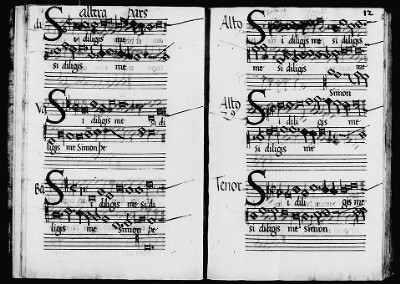 altera pars
di S i diligis me
si diligis me
Vi S i diligis me si di
ligis me Simon pe
Ba S i diligis me si di
ligis me simon pe
12
Alto S i diligis me si diligis
me si diligis me
Simon
Alto S i dili gis me
si diligis me
Tenor S i dili gis me
si diligis me simon